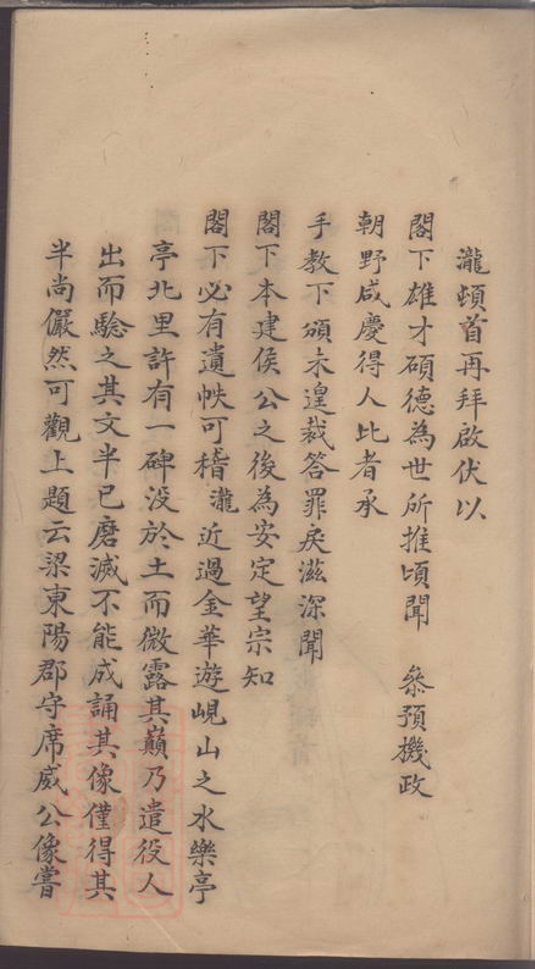 瀧頓首再拜啟伏以
閣下雄才碩德為世所推頃聞 叅預機政
朝野咸慶得人比者承
手教下頒未遑裁答罪戾滋深聞
閣下本建侯公之後為安定望宗知
閣下必有遺帙可稽瀧近過金華遊峴山之水樂亭
亭北里許有一碑没於土而微露其巔乃遣役人
出而驗之其文半已磨滅不能成誦其像僅得其
半尚儼然可觀上題云梁東陽郡守席威公像嘗